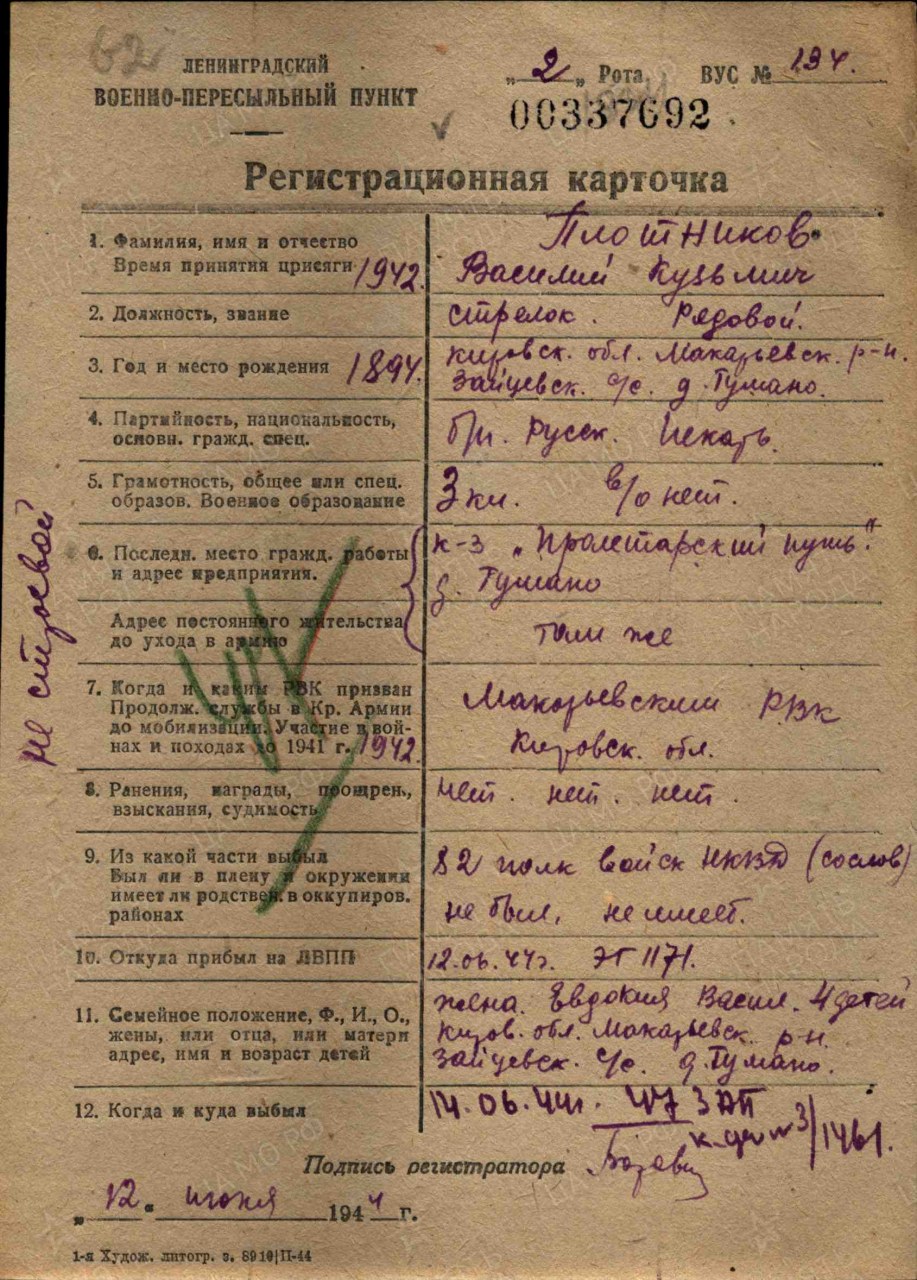 62
ЛЕНИНГРАДСКИЙ
ВОЕННО-ПЕРЕСЫЛЬНЫЙ ПУНКТ
„ 2 „ Рота ВУС № 134.
00337692
Регистрационная карточка
1. Фамилия, имя и отчество
Время принятия присяги 1942.
Плотников
Василий Кузьмич
2. Должность, звание
стрелок. Рядовой.
3. Год и место рождения 1894.
Кировск. обл. Макарьевск. р-н.
Зайцевск. с/с. д. Тумано.
4. Партийность, национальность,
основн. гражд. спец.
б/п. Русск. Пекарь.
5. Грамотность, общее или спец.
образов. Военное образование
3 кл. в/о нет.
6. Последн. место гражд. работы
и адрес предприятия.
к-з „Пролетарский путь".
д. Тумано
Адрес постоянного жительства
до ухода в армию
там же
7. Когда и каким РВК призван
Продолж. службы в Кр. Армии
до мобилизации. Участие в вой-
нах и походах до 1941 г. 1942.
Макарьевским РВК
Кировск. обл.
8. Ранения, награды, поощрен.,
взыскания, судимость
нет. нет. нет.
9. Из какой части выбыл
Был ли в плену и окружении
имеет ли родствен. в оккупиров.
районах
82 полк войск НКВД
не был, не имеет.
10. Откуда прибыл на ЛВПП
12.06.44г. ЭГ 1171.
11. Семейное положение, Ф., И., О.,
жены, или отца, или матери
адрес, имя и возраст детей
жена. Евдокия Васил. 4 детей
Киров. обл. Макарьевск. р-н.
Зайцевск. с/с. д. Тумано.
12. Когда и куда выбыл
14.06.44г. ЗАП
3/1461.
Подпись регистратора
„ 12 " июня 1944 г.
1-я Худож. литогр. з. 8910|II-44
не строевой